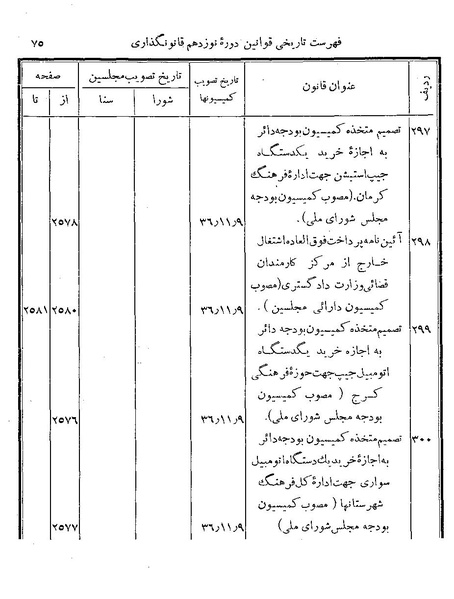 فهرست تاریخی قوانین دورهٔ نوزدهم قانونگذاری ۷۵
ردیف عنوان قانون تاریخ تصویب کمیسیونها تاریخ تصویب مجلسین صفحه
شورا سنا از تا
۲۹۷ تصمیم متخذه کمیسیون بودجه دائر
به اجازهٔ خرید یکدستگاه
جیپ استیشن جهت ادارهٔ فرهنگ
کرمان. (مصوب کمیسیون بودجه
مجلس شورای ملی). ۳۶٫۱۱٫۹ ۲۵۷۸
۲۹۸ آئین نامه پرداخت فوق العاده اشتغال
خارج از مرکز کارمندان
قضائی وزارت دادگستری (مصوب
کمیسیون دارائی مجلسین). ۳۶٫۱۱٫۹ ۲۵۸۰ ۲۵۸۱
۲۹۹ تصمیم متخذه کمیسیون بودجه دائر
به اجازه خرید یکدستگاه
اتومبیل جیپ جهت حوزهٔ فرهنگی
کرج (مصوب کمیسیون
بودجه مجلس شورای ملی). ۳۶٫۱۱٫۹ ۲۵۷۶
۳۰۰ تصمیم متخذه کمیسیون بودجه دائر
به اجازهٔ خرید یك دستگاه اتومبیل
سواری جهت ادارهٔ کل فرهنگ
شهرستانها (مصوب کمیسیون
بودجه مجلس شورای ملی) ۳۶٫۱۱٫۹ ۲۵۷۷